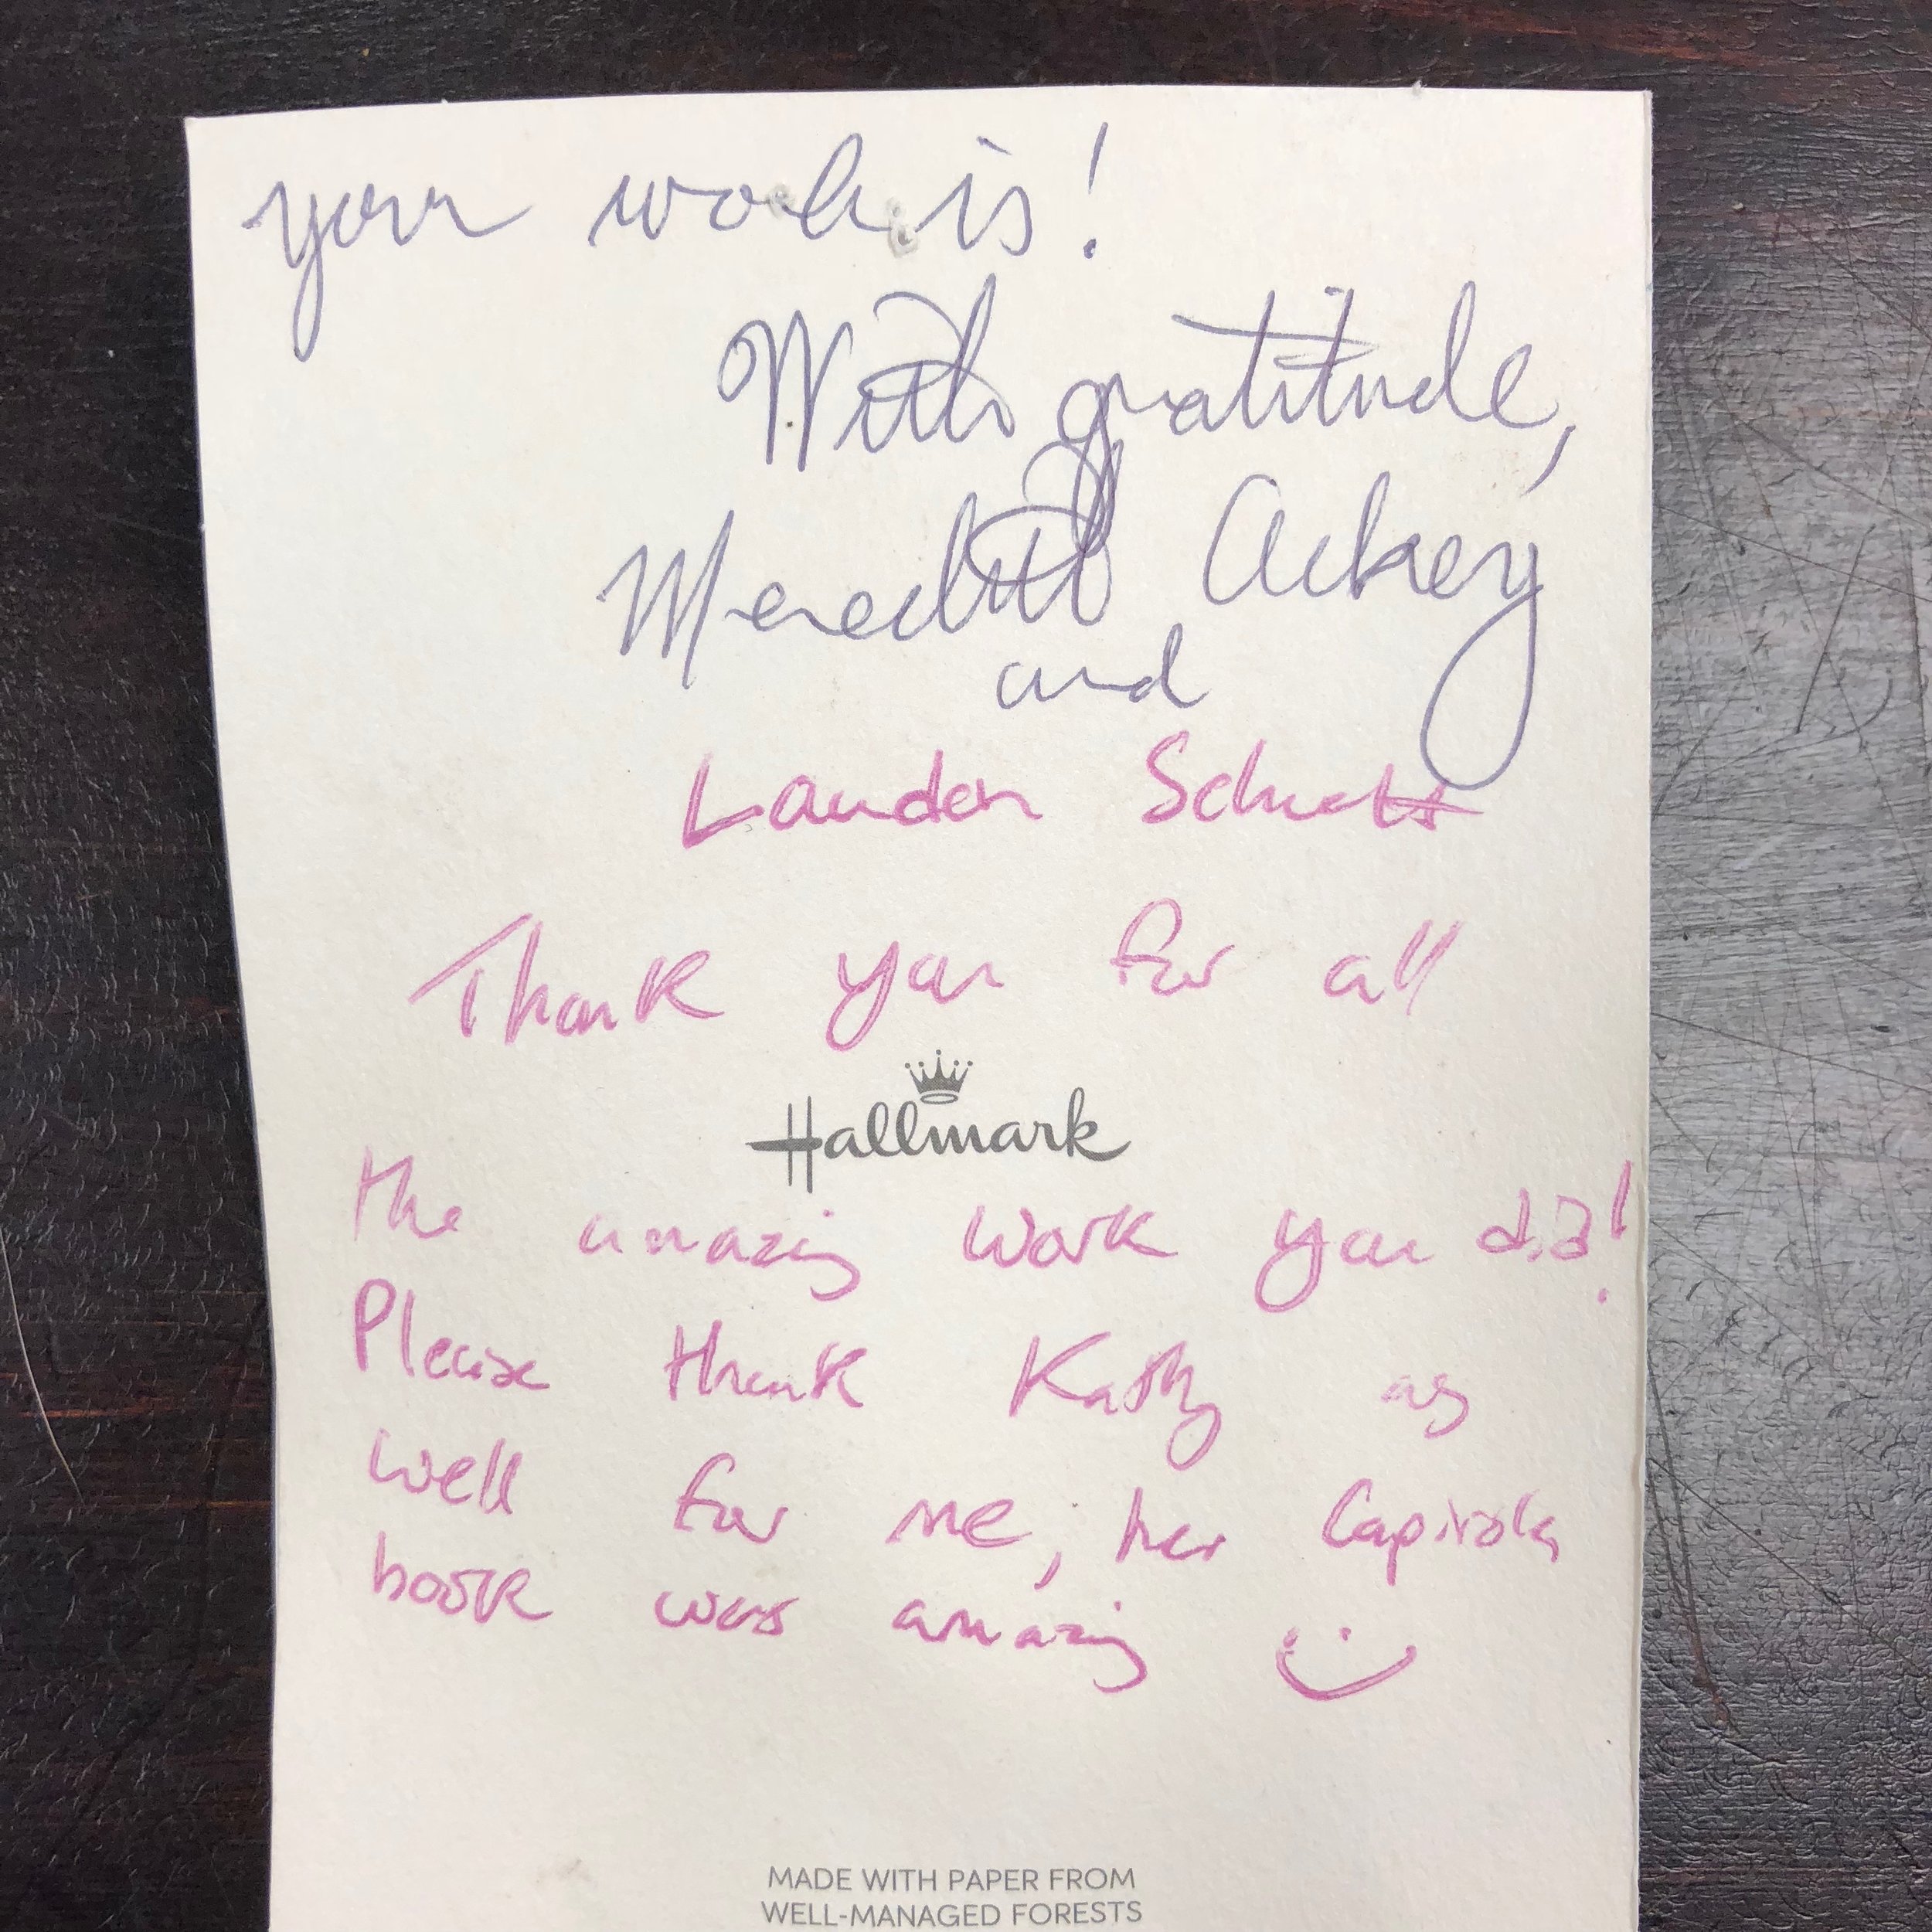 your work is!
With gratitude,
Meredith Ackey
and
Landon Schutt
Thank you for all
Hallmark
the amazing work you did!
Please thank Kathy as
well for me, her Capitola
book was amazing
MADE WITH PAPER FROM
WELL-MANAGED FORESTS